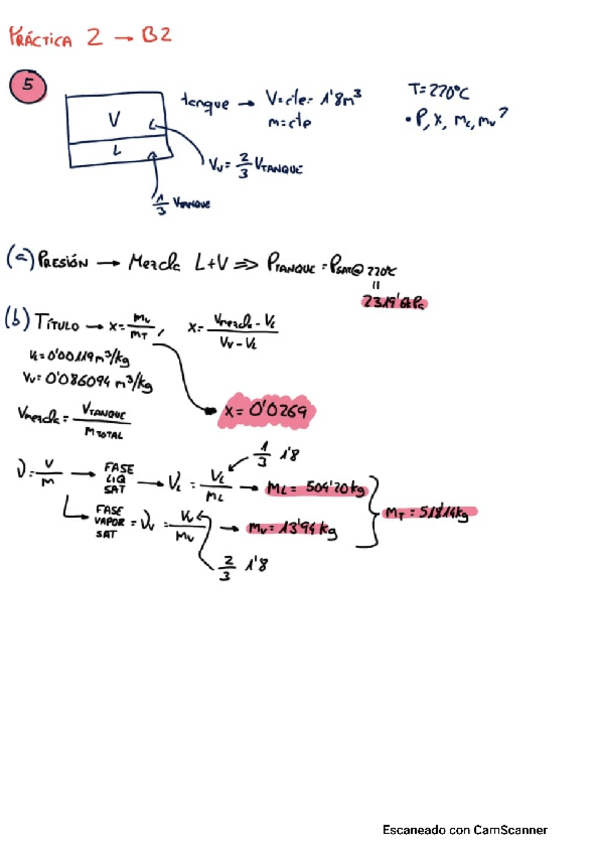 PRÁCTICA 2 → B2
5
V
L
tanque → V=cte= 1'8m³
m=cte
T=220ºC
• P, X, ML, mv?
Vv = 2/3 VTANQUE
1/3 VTANQUE
(a) PRESIÓN → Mezcla L+V ⇒ PTANQUE = PSAT@220ºC
=
2319'6kPa
(b) TÍTULO → x = mv/mT, x = (Vmezcla - VL)/(Vv - VL)
VL = 0'00119 m³/kg
Vv = 0'086094 m³/kg
Vmezcla = VTANQUE/MTOTAL
x = 0'0269
ν = V/M → FASE LIQ SAT → νL = VL/ML → ML = 504'20kg
1/3 1'8
FASE VAPOR SAT = νv = Vv/Mv → Mv = 13'94kg
2/3 1'8
MT = 518'14kg
Escaneado con CamScanner